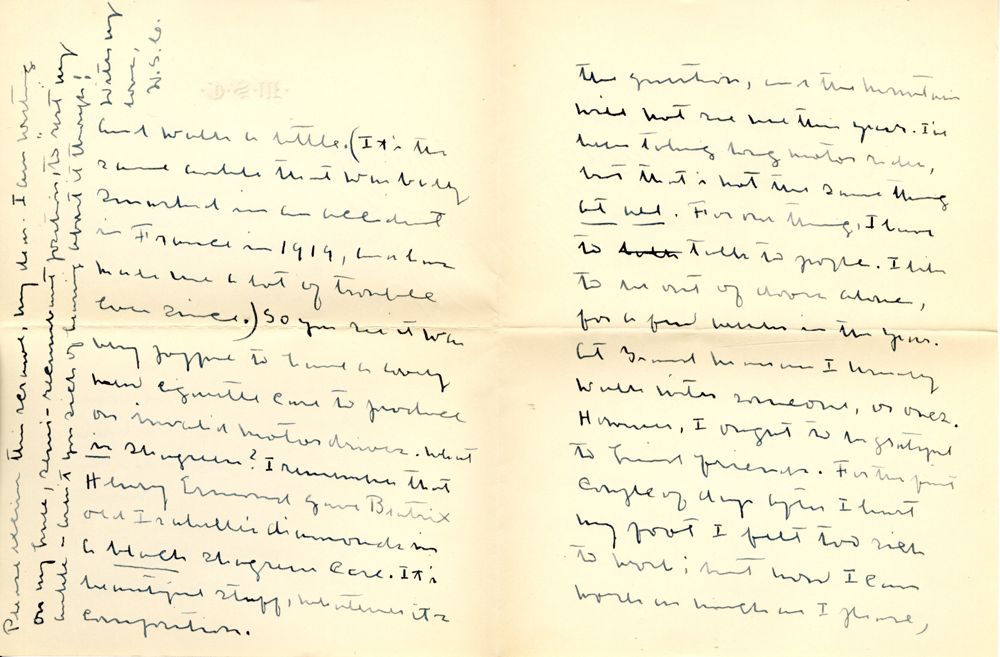 the question, and the mountain
will not see me this year. I've
been taking long motor rides,
but that's not the same thing
at all. For one thing, I have
to talk to people. I like
to be out of doors alone,
for a few weeks in the year.
At Grand Manan I
walk with someone, or
However, I ought to be grateful
to kind friends. For the first
couple of days after I hurt
my foot I felt too sick
to work; but now I can
work as much as I please,
and walk a little. (It's the
same ankle that was badly
smashed in an accident
in France in 1919, and has
made me a lot of trouble
ever since.) So you see it was
very to have a lovely
new cigarette case to produce
on invalid motor drives. What
is shagreen? I remember that
Henry Esmond gave Beatrix
old Isabella's diamonds in
a black shagreen case. It's
beautiful stuff, whatever its
composition.
Please excuse this scrawl, my dear. I am writing
on my knee, semi-recumbent position, to rest my
ankle - aren't you sick of hearing about it though!
With my
love,
W.S.C.